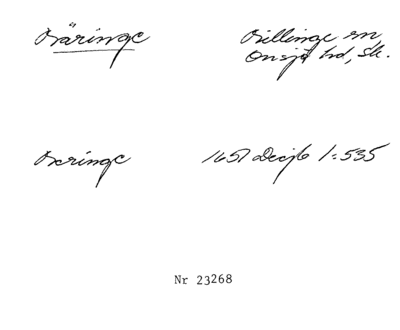 Bäringe
Billinge sn,
Onsjö hd, Sk.
Beringe
1651 Decjb 1:535
Nr 23268